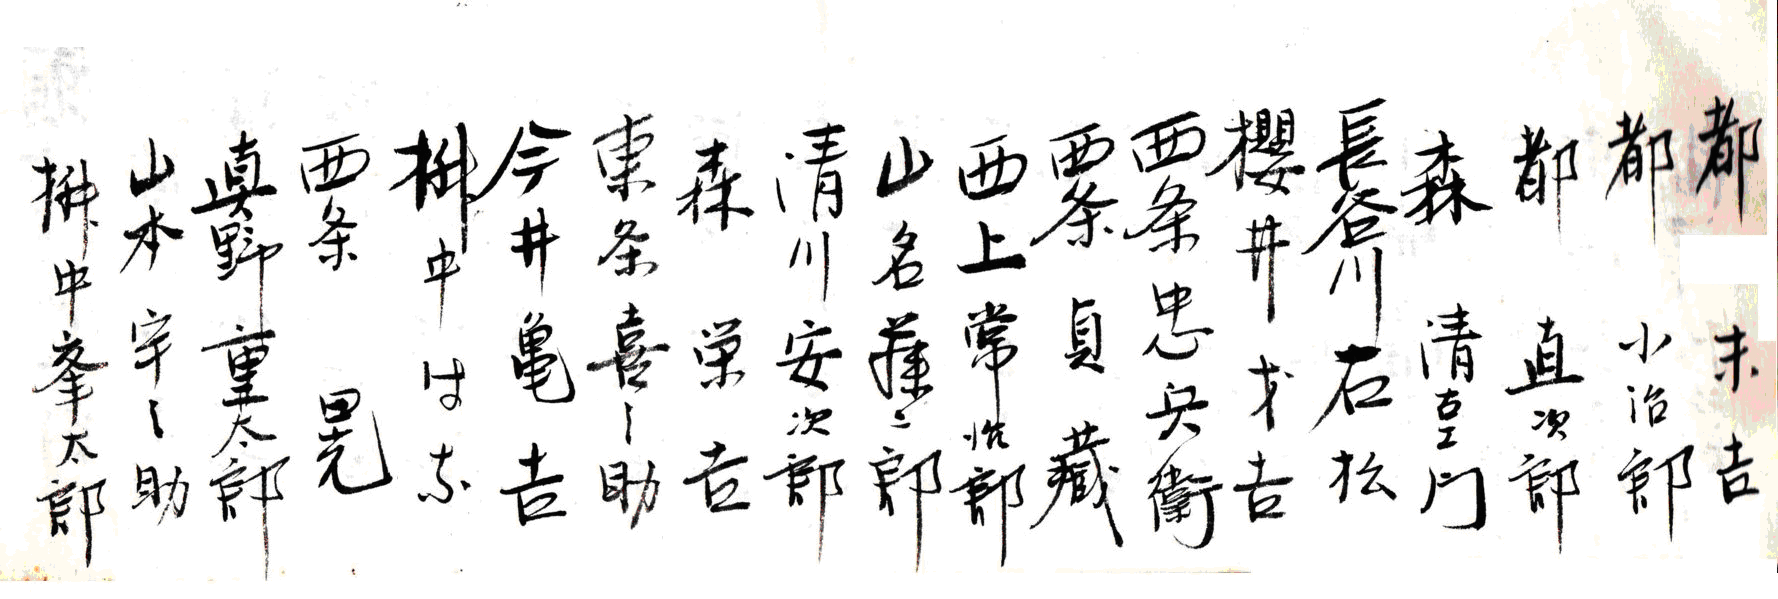 都 末吉
都 小治郎
都 直次郎
森 清左エ門
長谷川石松
櫻井才吉
西条忠兵衛
西条貞藏
西上常治郎
山名藤二郎
清川安次郎
森栄吉
東条喜之助
今井亀吉
桝中はな
西条 晃
真野重太郎
山本宇之助
桝中峯太郎